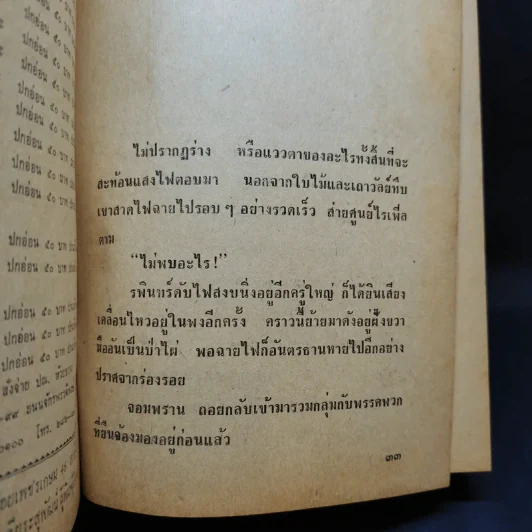 ปกอ่อน ๕๐ บาท
ปกอ่อน ๕๐ บาท
ปกอ่อน ๕๐ บาท
ปกอ่อน ๕๐ บาท
ปกอ่อน ๕๐ บาท
ปกอ่อน ๕๐ บาท
ปกอ่อน ๕๐ บาท
ปกอ่อน ๕๐ บาท
ไม่ปรากฏร่าง หรือแววตาของอะไรทั้งสิ้นที่จะ
สะท้อนแสงไฟตอบมา นอกจากใบไม้และเถาวัลย์ทึบ
เขาสาดไฟฉายไปรอบ ๆ อย่างรวดเร็ว ส่ายศูนย์ไรเฟิล
ตาม
“ไม่พบอะไร!”
รพินทร์ดับไฟสงบนิ่งอยู่อีกครู่ใหญ่ ก็ได้ยินเสียง
เคลื่อนไหวอยู่ในพงอีกครั้ง คราวนี้ย้ายมาดังอยู่ฝั่งขวา
มืออันเป็นป่าไผ่ พอฉายไฟก็อันตรธานหายไปอีกอย่าง
ปราศจากร่องรอย
จอมพราน ถอยกลับเข้ามารวมกลุ่มกับพรรคพวก
ที่ยืนจ้องมองอยู่ก่อนแล้ว
๓๓